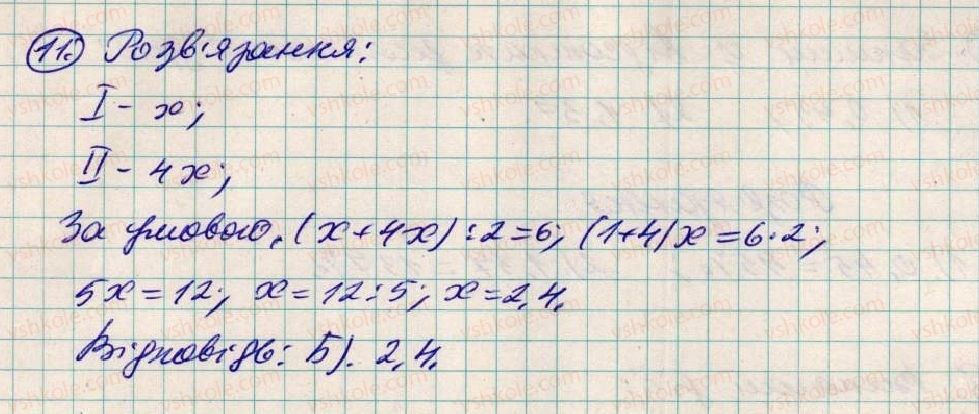 11. Розв'язання:
I - x;
II - 4x;
За умовою. (x+4x):2=6; (1+4)x=6·2;
5x=12; x=12:5; x=2,4.
Відповідь: Б). 2,4.